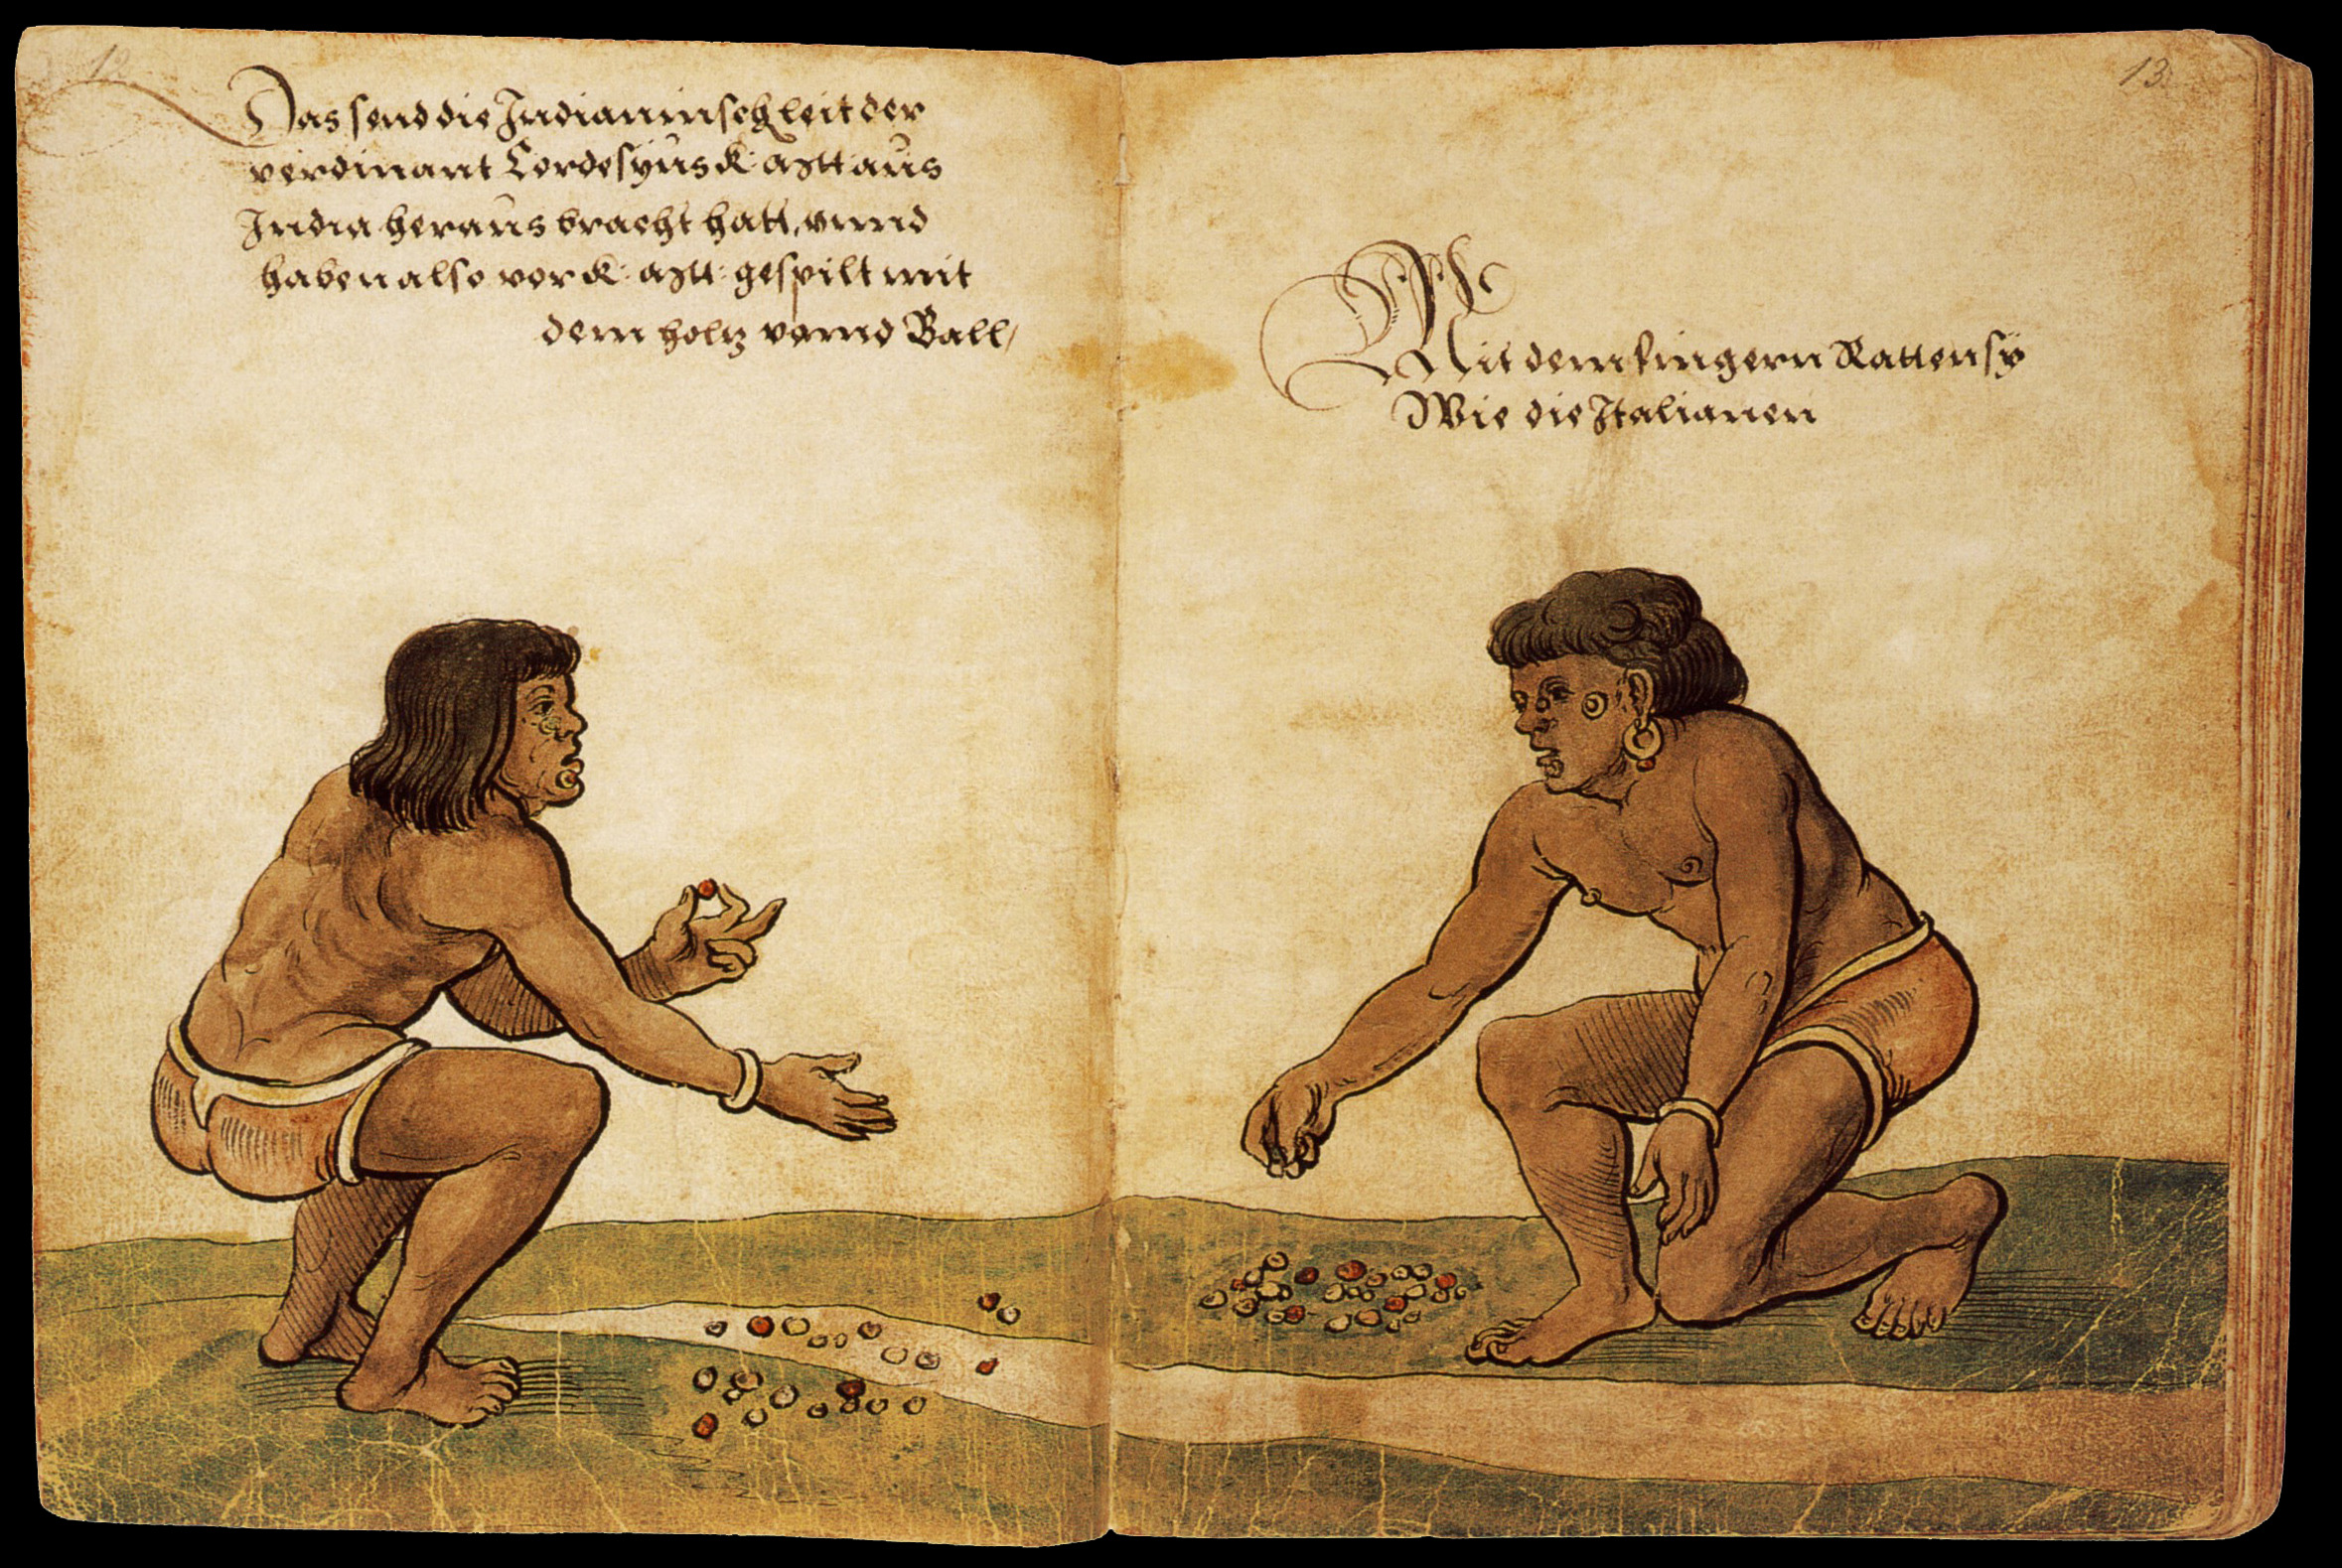 12
Das send die Indianinsch leit der
verdinant Cordesyus K: aÿtt aus
India heraus bracht hatt, vnnd
haben also vor K: aÿtt: gespilt mit
dem holtz vnnd Ball/
13
Mit dem fingern Rattensy
Wie die Italianen